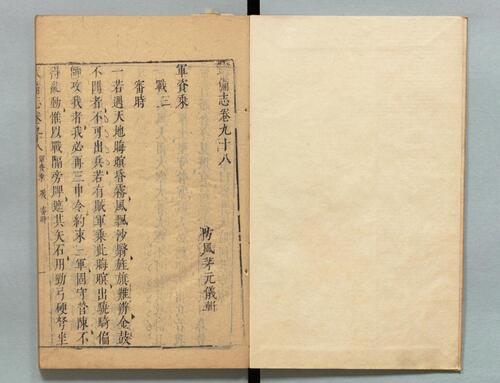 武備志卷九十八
防風茅元儀輯
軍資乘
戰三
審時
一若遇天地晦暝昏霧風飄沙翳旌旗難辨金鼓
不聞者不可出兵若有賊軍乘此晦暝出驍騎偏
師攻我者我必再三申令約束三軍固守營陳不
得亂動惟以戰隔旁牌遮其矢石用勁弓硬弩坐
武備志卷九十八 軍資乘 戰 審時